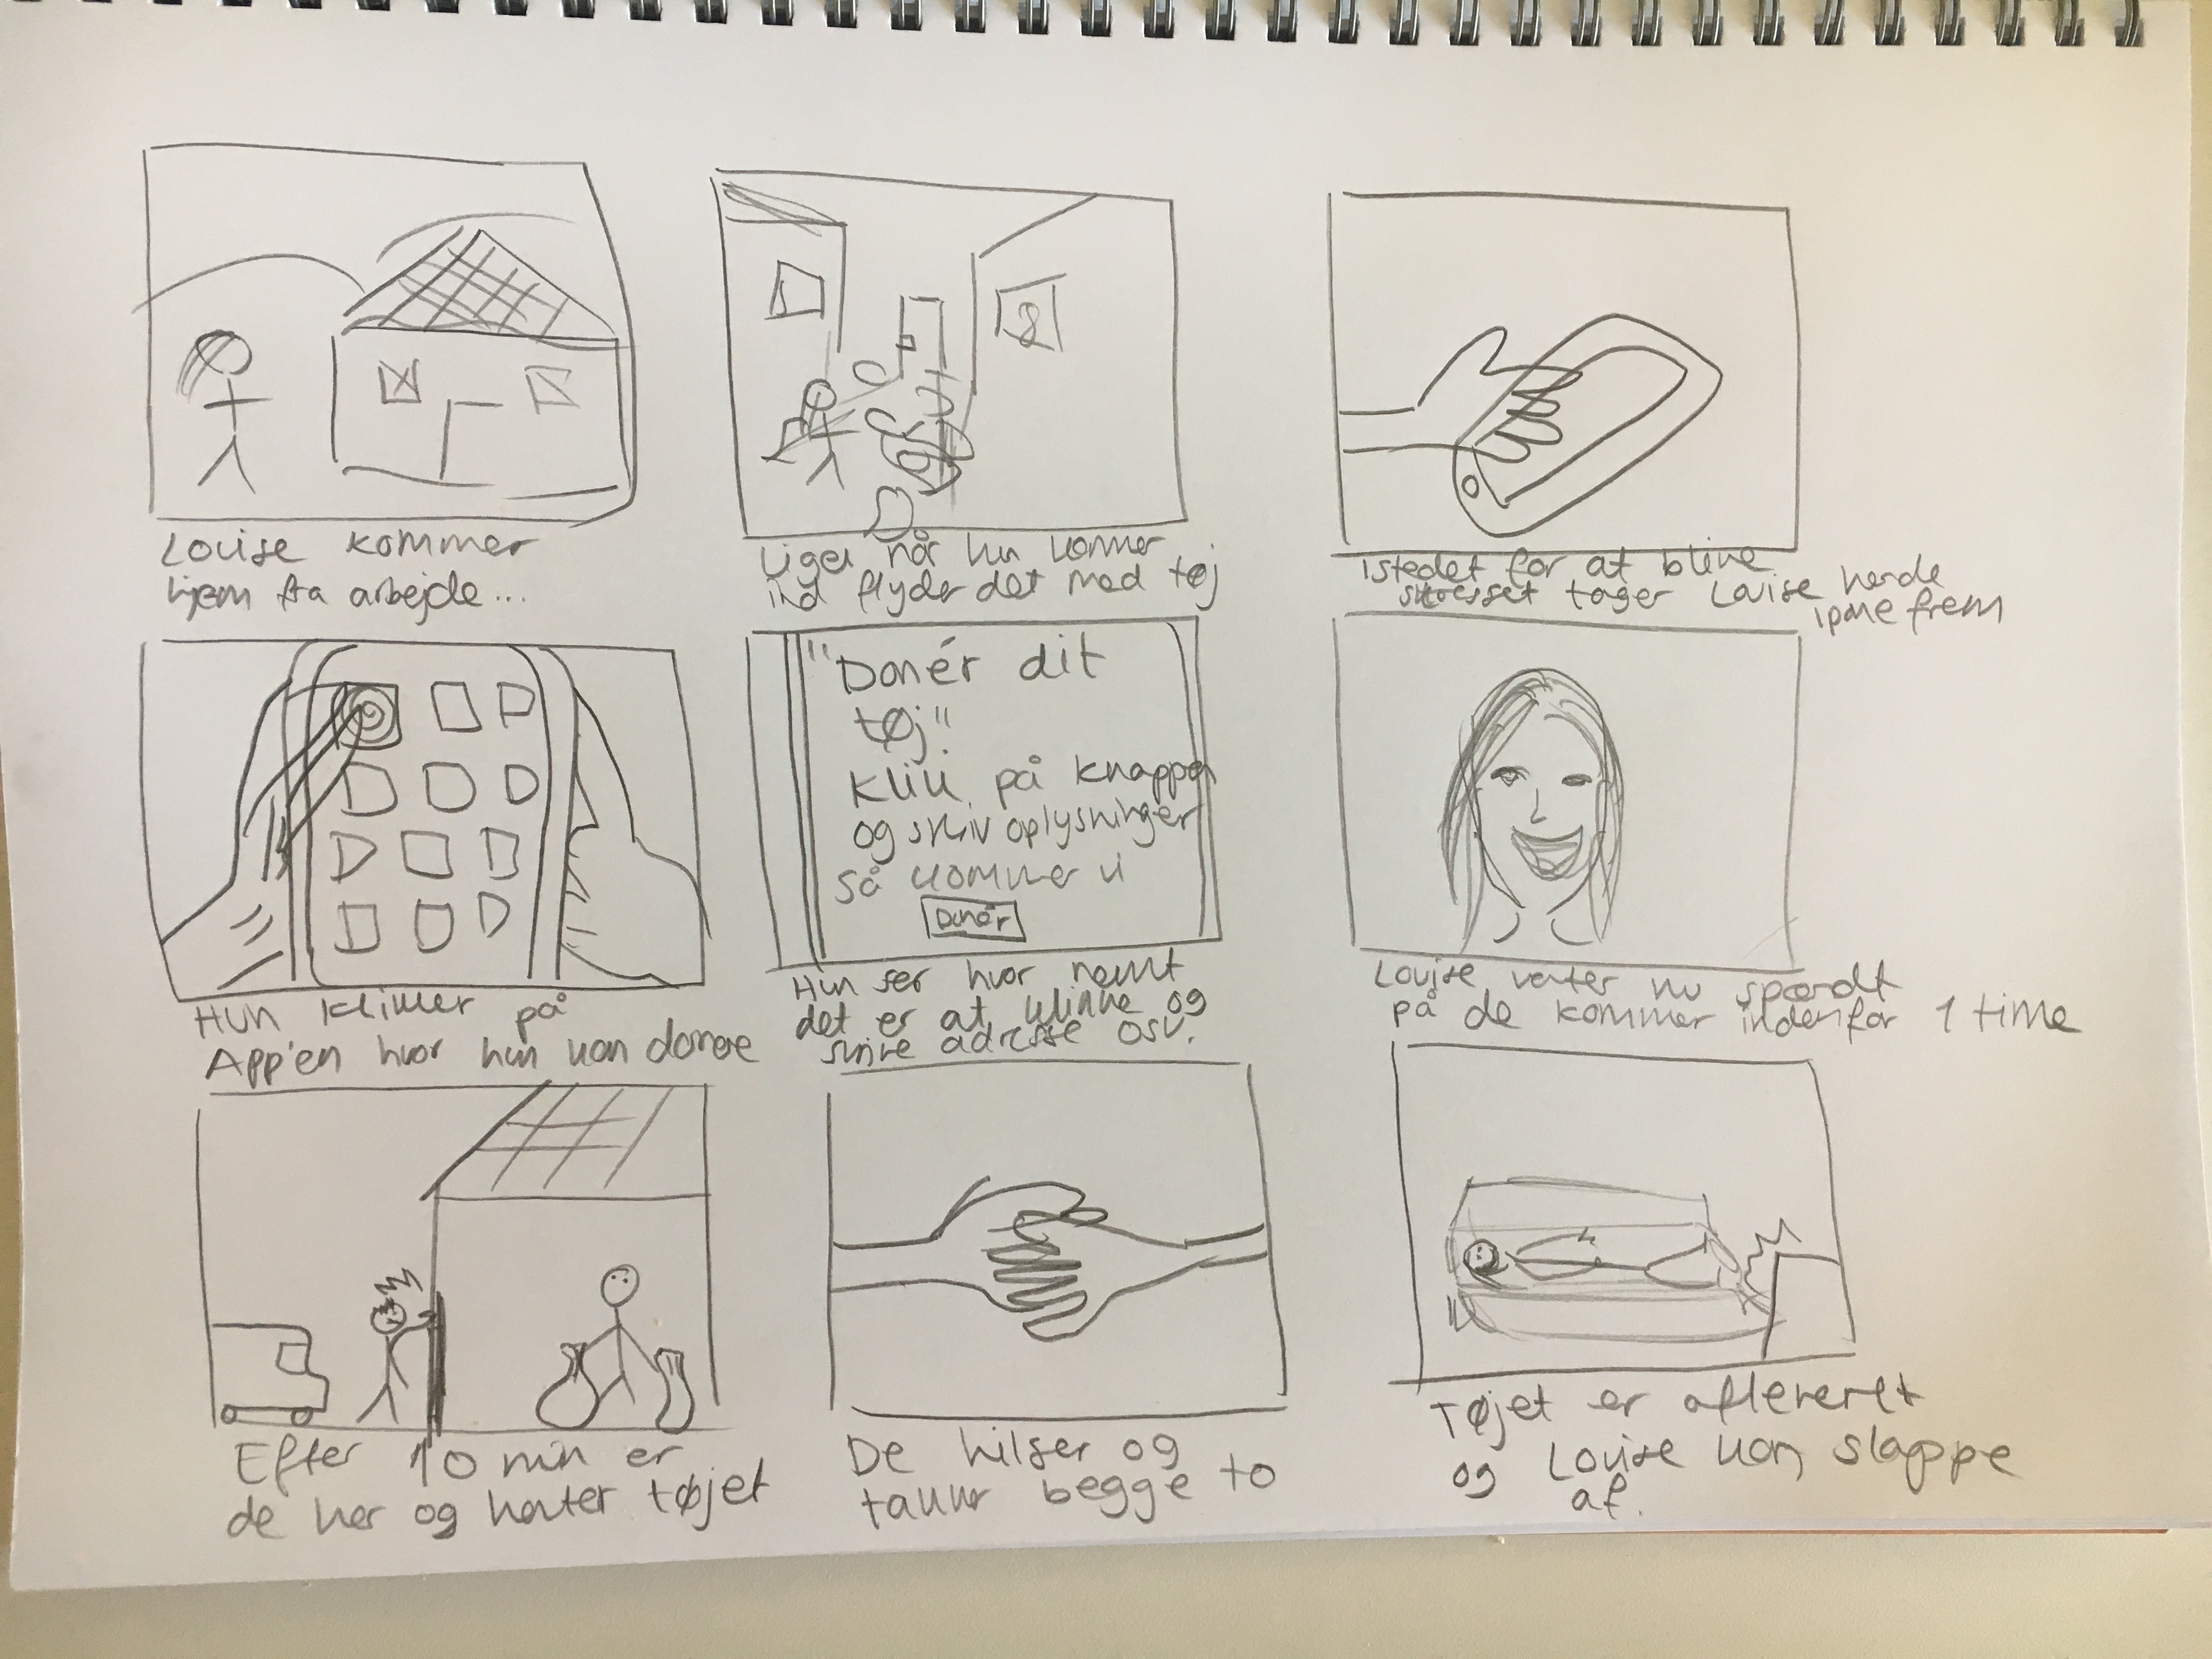 Louise kommer
hjem fra arbejde...
Liger når hun kommer
ind flyder det med tøj
istedet for at blive
stresset tager Louise hende
ipone frem
Hun klikker på
App'en hvor hun kan donere
"Donér dit
tøj"
Klik på knappen
og skriv oplysninger
Så kommer vi
Donér
Hun ser hvor nemt
det er at klikke og
skrive adresse osv.
Louise venter nu spændt
på de kommer indenfor 1 time
Efter 10 min er
de her og henter tøjet
De hilser og
takker begge to
Tøjet er afleveret
og Louise kan slappe
af.